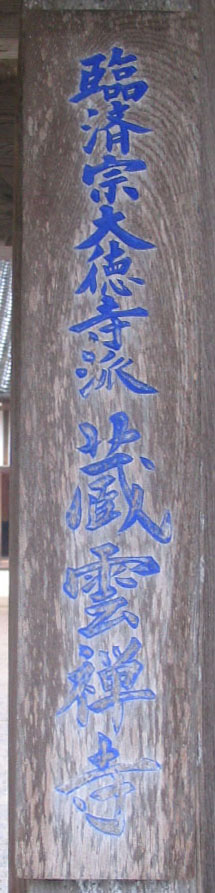 臨済宗大徳寺派蔵雲禅寺